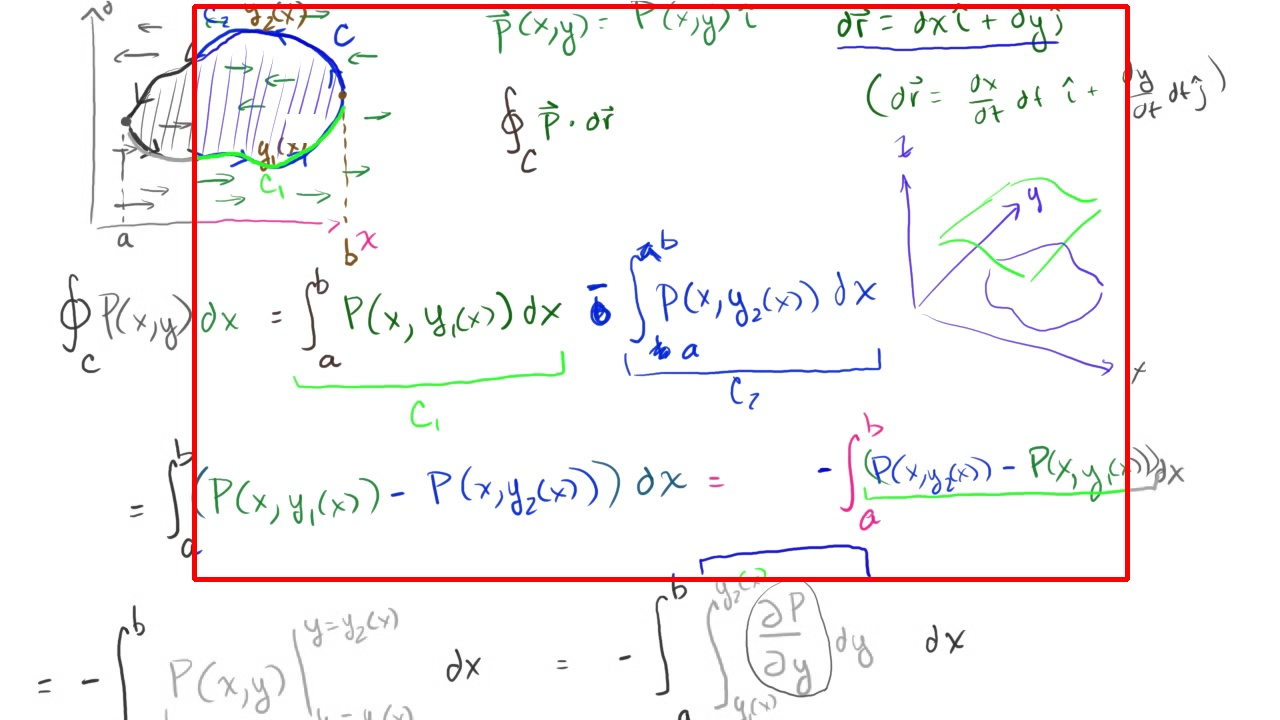 C₂ y₂(x) C
P⃗(x,y) = P(x,y) î
dr⃗ = dx î + dy ĵ
(dr⃗ = dx/dt dt î + dy/dt dt ĵ)
∮_C P⃗ · dr⃗
y₁(x)
C₁
a b x
z y x
∮_C P(x,y) dx = ∫_a^b P(x, y₁(x)) dx - ∫_a^b P(x, y₂(x)) dx
C₁ C₂
= ∫_a^b (P(x, y₁(x)) - P(x, y₂(x))) dx = - ∫_a^b (P(x, y₂(x)) - P(x, y₁(x))) dx
= - ∫^b P(x,y) |_{y = y₁(x)}^{y = y₂(x)} dx = - ∫_a^b ∫_{y₁(x)}^{y₂(x)} ∂P/∂y dy dx